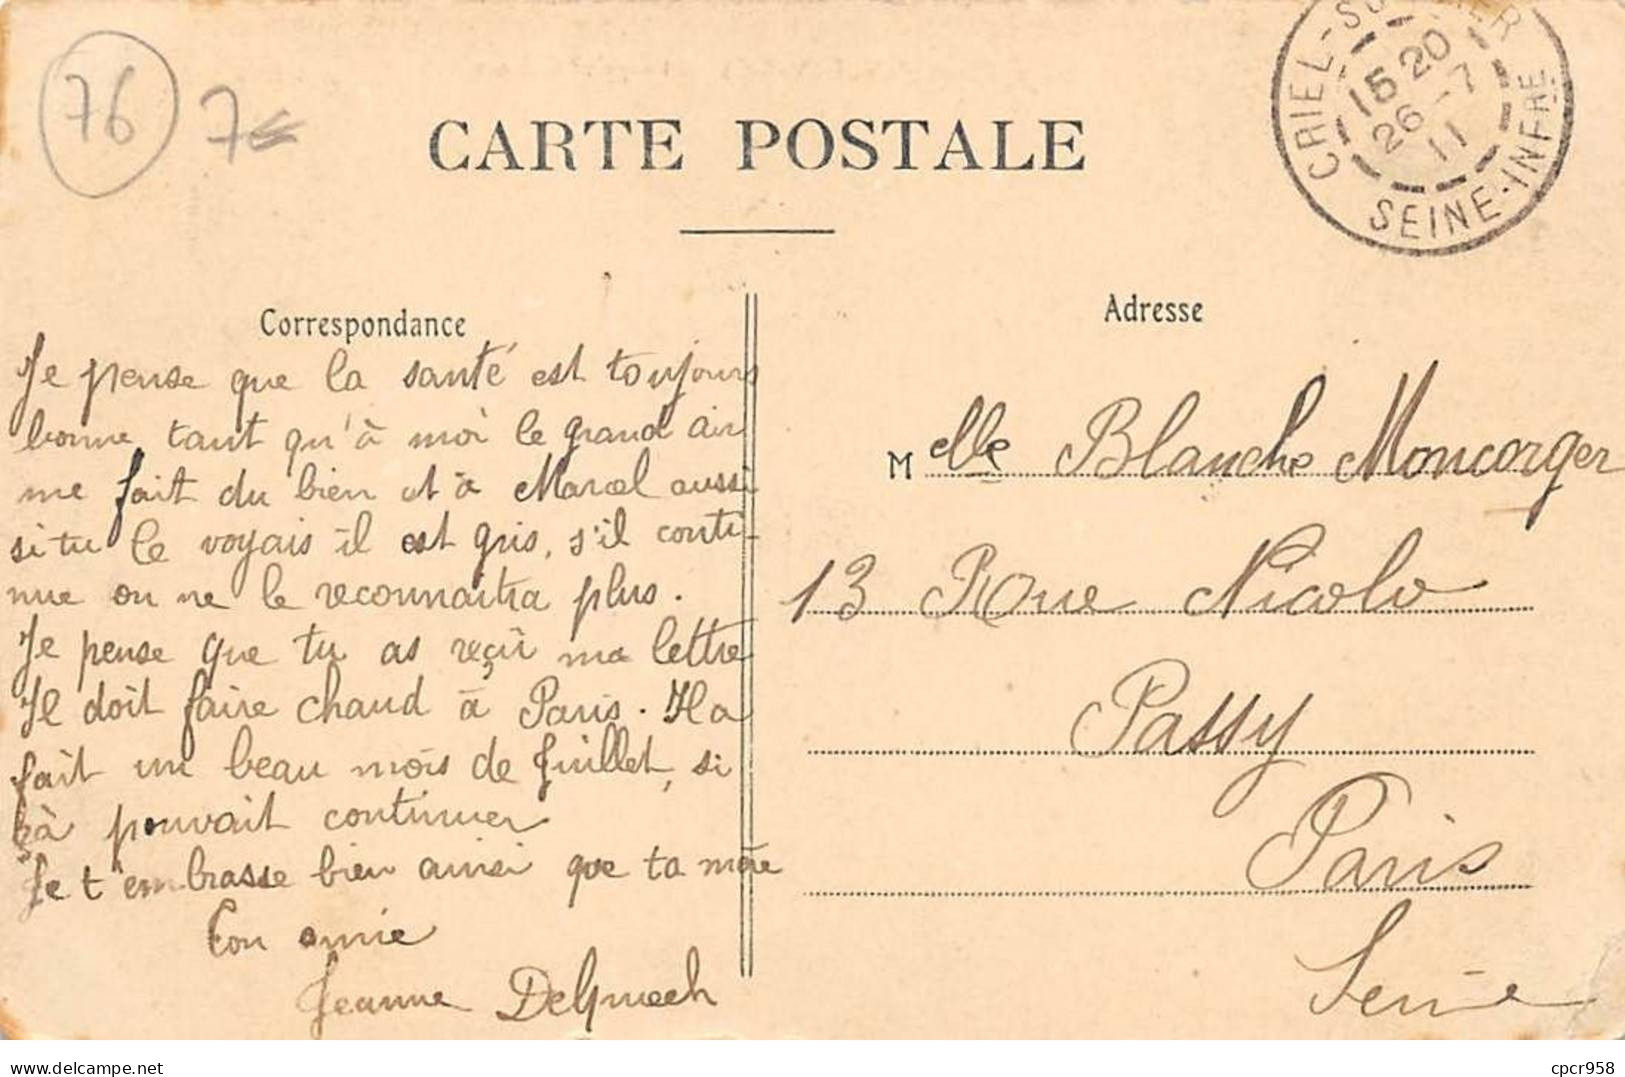 76 7€
CARTE POSTALE
CRIEL-SUR-MER
15 20
26 - 7
11
SEINE-INFRE
Correspondance
Je pense que la santé est toujours
bonne, tant qu'à moi le grand air
me fait du bien et à Marcel aussi
si tu le voyais il est gris, s'il conti-
nue on ne le reconnaitra plus.
Je pense que tu as reçu ma lettre
Il doit faire chaud à Paris. Il a
fait un beau mois de Juillet, si
çà pouvait continuer
Je t'embrasse bien ainsi que ta mère
Ton amie
Jeanne
Adresse
Melle Blanche Moncorger
13 Rue Nicolo
Passy
Paris
Seine
delcampe.net
cpcr958